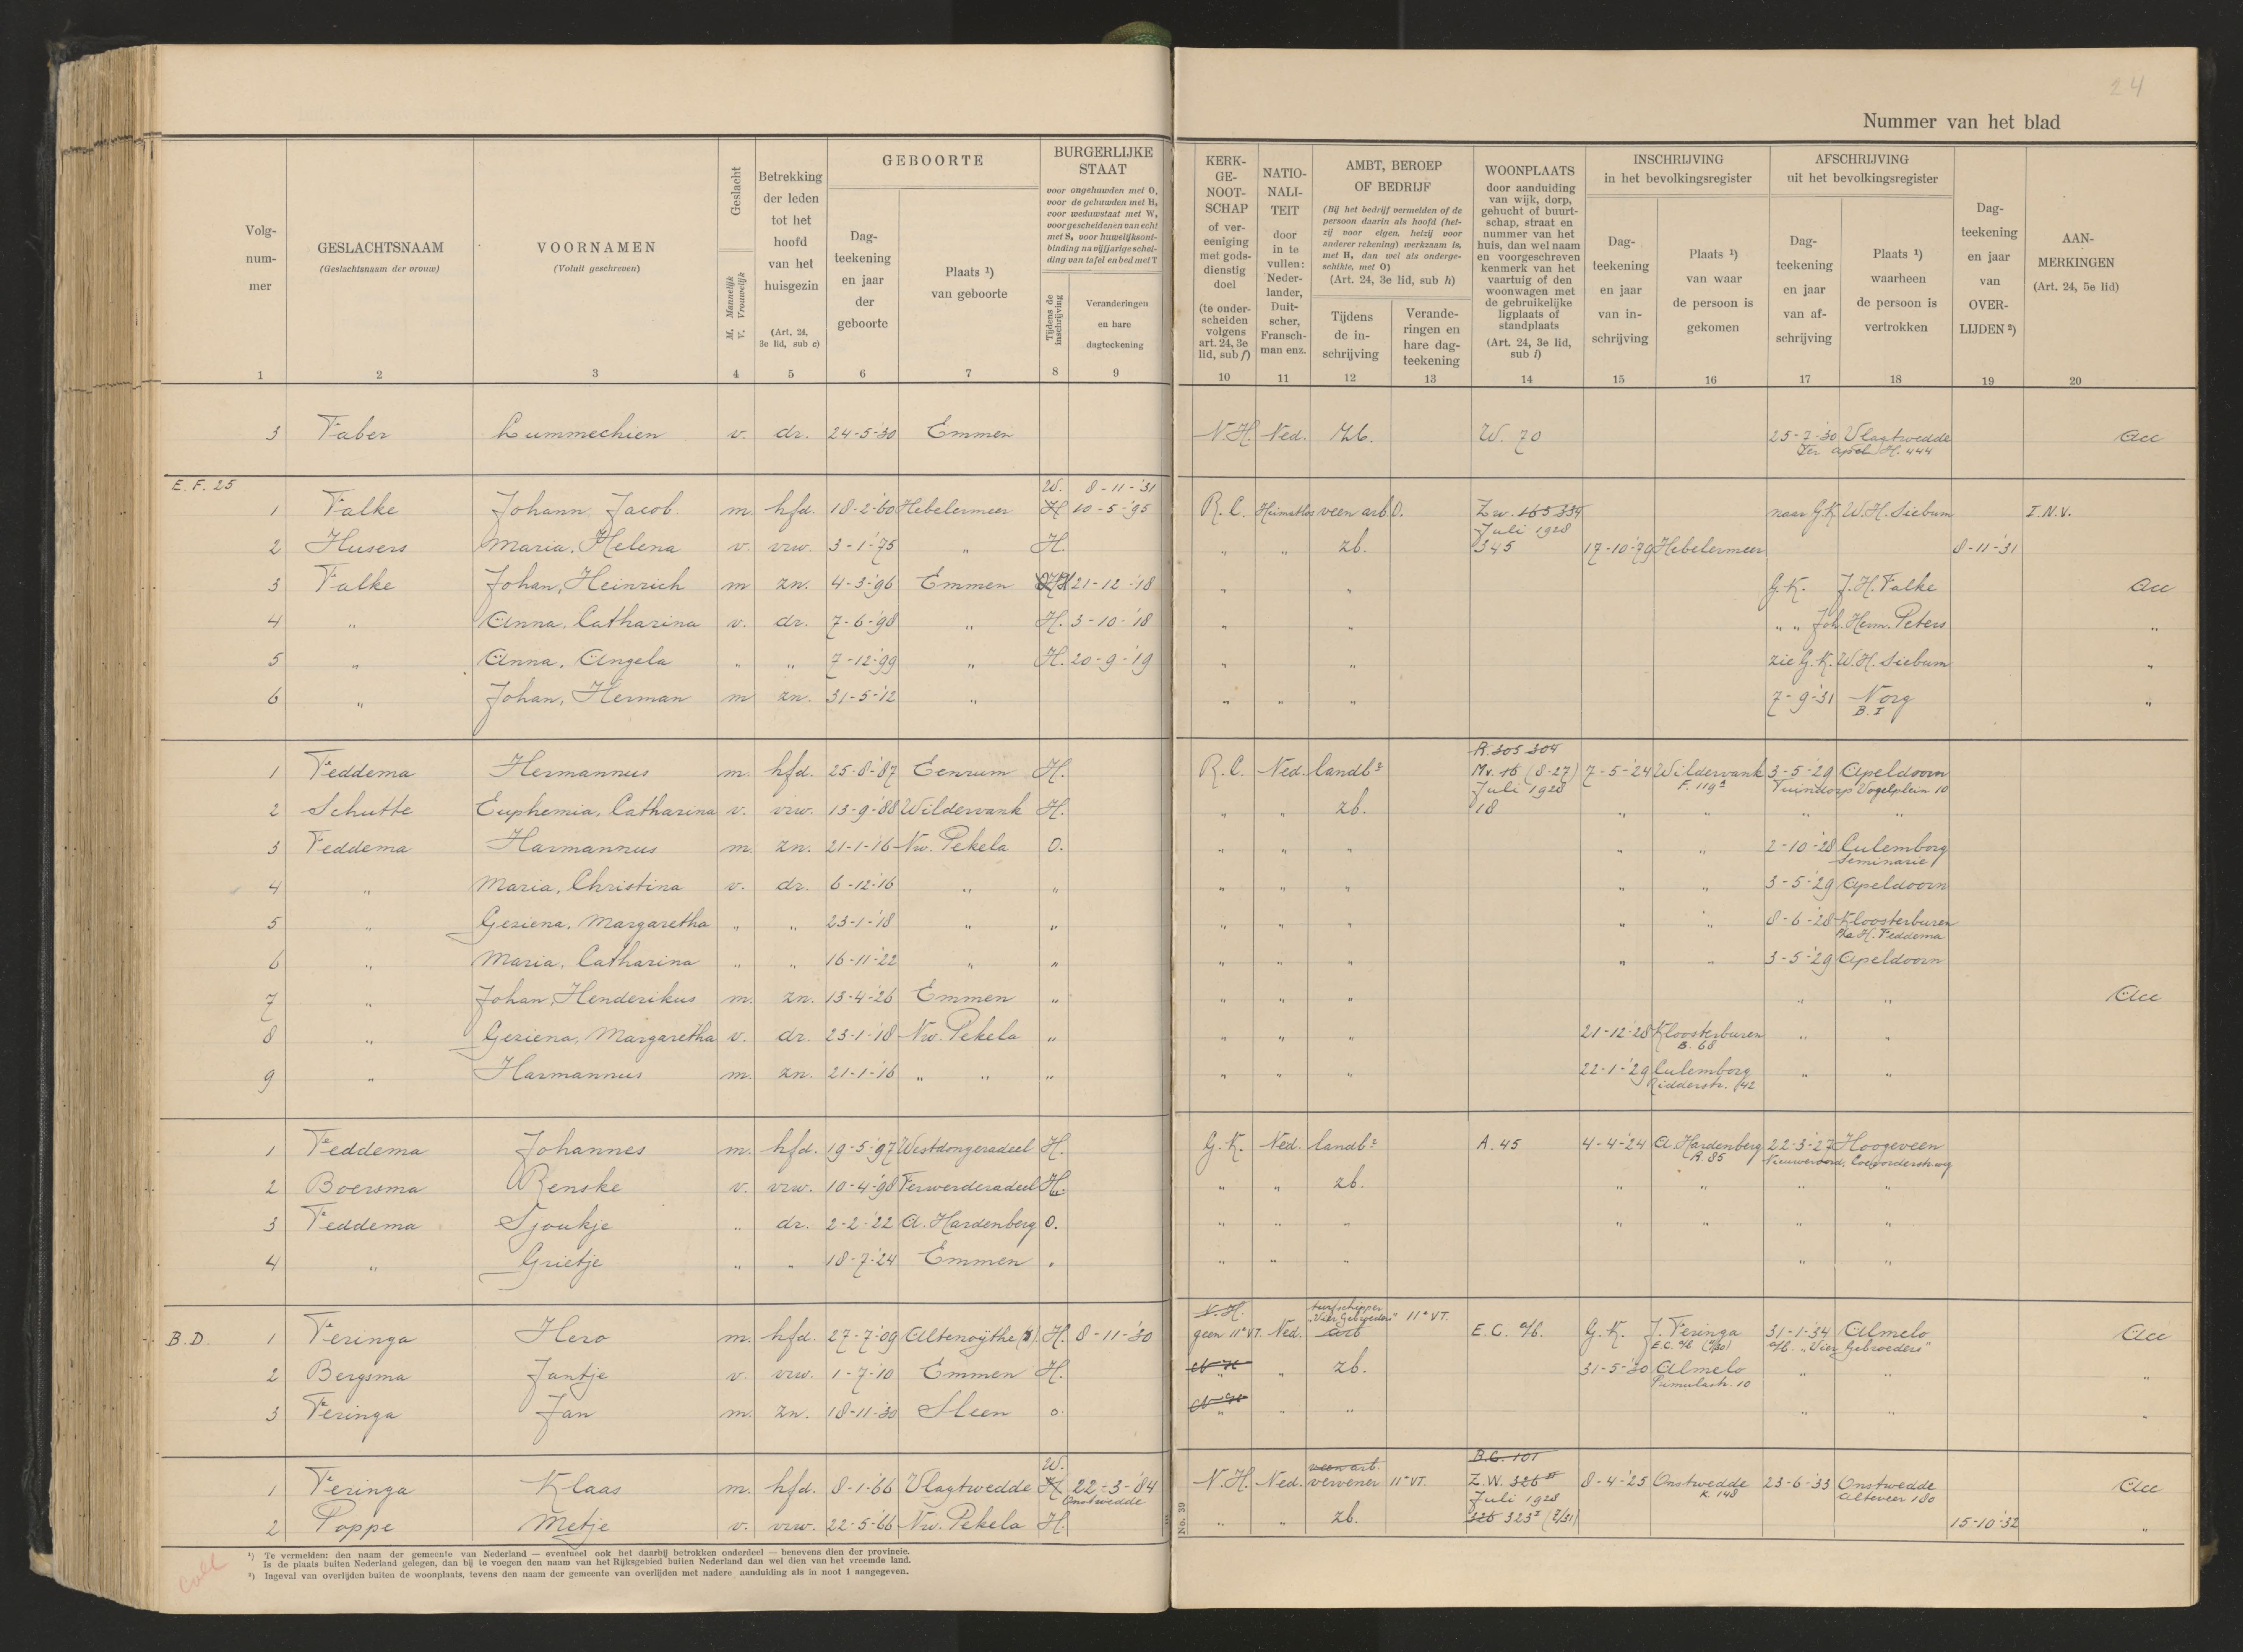 24
Nummer van het blad
Volg-nummer
GESLACHTSNAAM
(Geslachtsnaam der vrouw)
VOORNAMEN
(Voluit geschreven)
Geslacht
M. Mannelijk
V. Vrouwelijk
Betrekking der leden tot het hoofd van het huisgezin
(Art. 24, 3e lid, sub c)
GEBOORTE
Dag-teekening en jaar der geboorte
Plaats ¹) van geboorte
BURGERLIJKE STAAT
voor ongehuwden met O,
voor de gehuwden met H,
voor weduwstaat met W,
voor gescheidenen van echt
met S, voor huwelijksont-
binding na vijfjarige schei-
ding van tafel en bed met T
Tijdens de inschrijving
Veranderingen en hare dagteekening
KERK-GE-NOOT-SCHAP
of ver-eeniging met gods-dienstig doel
(te onder-scheiden volgens art. 24, 3e lid, sub f)
NATIO-NALI-TEIT
door in te vullen: Neder-lander, Duit-scher, Fransch-man enz.
AMBT, BEROEP OF BEDRIJF
(Bij het bedrijf vermelden of de
persoon daarin als hoofd (het-
zij voor eigen, hetzij voor
anderer rekening) werkzaam is,
met H, dan wel als onderge-
schikte, met O)
(Art. 24, 3e lid, sub h)
Tijdens de in-schrijving
Verande-ringen en hare dag-teekening
WOONPLAATS
door aanduiding
van wijk, dorp,
gehucht of buurt-
schap, straat en
nummer van het
huis, dan wel naam
en voorgeschreven
kenmerk van het
vaartuig of den
woonwagen met
de gebruikelijke
ligplaats of
standplaats
(Art. 24, 3e lid, sub i)
INSCHRIJVING
in het bevolkingsregister
Dag-teekening en jaar van in-schrijving
Plaats ¹) van waar de persoon is gekomen
AFSCHRIJVING
uit het bevolkingsregister
Dag-teekening en jaar van af-schrijving
Plaats ¹) waarheen de persoon is vertrokken
Dag-teekening en jaar van OVER-LIJDEN ²)
AAN-MERKINGEN
(Art. 24, 5e lid)
1 2 3 4 5 6 7 8 9 10 11 12 13 14 15 16 17 18 19 20
3 Faber Lummechien v. dr. 24-5-'30 Emmen N.H. Ned. Zb. W. 70 25-7-'30 Vlagtwedde Acc
Ter Apel H. 444
E. F. 25 W. 8-11-'31
1 Falke Johann, Jacob. m. hfd. 18-2-'60 Hebelermeer H 10-5-'95 R.C. Heimatlos veenarb. O. Z.w. 165 334 naar G.K. W.H. Siebum I.N.V.
Juli 1928
2 Husers Maria, Helena v. vrw. 3-1-'75 " H. " " zb. 345 17-10-'79 Hebelermeer 8-11-'31
3 Falke Johan, Heinrich m zn. 4-3-'96 Emmen H 21-12-'18 " " G.K. J.H. Falke Acc
4 " Anna, Catharina v. dr. 7-6-'98 " H. 3-10-'18 " " " " Joh. Herm. Peters "
5 " Anna, Angela " " 7-12-'99 " H. 20-9-'19 " " zie G.K. W.H. Siebum "
6 " Johan, Herman m zn. 31-5-'12 " " " " 7-9-'31 Norg "
B. I
R. 305 304
1 Feddema Hermannus m. hfd. 25-8-'87 Eenrum H. R.C. Ned. landbr Mv. 16 (8-27) 7-5-'24 Wildervank 3-5-'29 Apeldoorn
Juli 1928 F. 119a Tuindorp Vogelplein 10
2 Schutte Euphemia, Catharina v. vrw. 13-9-'88 Wildervank H. " " zb. 18 " " " "
3 Feddema Harmannus m. zn. 21-1-'16 Nw. Pekela O. " " " " " 2-10-'28 Culemborg
Seminarie
4 " Maria, Christina v. dr. 6-12-'16 " " " " " " " 3-5-'29 Apeldoorn
5 " Geziena, Margaretha " " 23-1-'18 " " " " " " " 8-6-'28 Kloosterburen
H. Feddema
6 " Maria, Catharina " " 16-11-'22 " " " " " " " 3-5-'29 Apeldoorn
7 " Johan, Henderikus m. zn. 13-4-'26 Emmen " " " " " " Acc
8 " Geziena, Margaretha v. dr. 23-1-'18 Nw. Pekela " " " " 21-12-'28 Kloosterburen " "
B. 68
9 " Harmannus m. zn. 21-1-'16 " " " " " " 22-1-'29 Culemborg " "
Ridderstr. 42
1 Feddema Johannes m. hfd. 19-5-'97 Westdongeradeel H. G.K. Ned. landbr A. 45 4-4-'24 A. Hardenberg 22-3-'27 Hoogeveen
R. 85 Nieuweroord, Coevorderstrweg
2 Boersma Renske v. vrw. 10-4-'98 Ferwerderadeel H. " " zb. " " " "
3 Feddema Sjoukje " dr. 2-2-'22 A. Hardenberg O. " " " " " " "
4 " Grietje " " 18-7-'24 Emmen " " " " " "
N.H. turfschipper
"Vier Gebroeders" 11e VT.
B.D. 1 Feringa Hero m. hfd. 27-7-'09 Altenoÿthe H. 8-11-'30 geen 11e VT. Ned. arb E.C. a/b. G.K. J. Feringa 31-1-'34 Almelo Acc
E.C. a/b a/b. "Vier Gebroeders"
2 Bergsma Jantje v. vrw. 1-7-'10 Emmen H. " " zb. 31-5-'30 Almelo " " "
Primulastr. 10
3 Feringa Jan m. zn. 18-11-'30 Sleen o. " " " " " "
W. veenarb. B.C. 101
1 Feringa Klaas m. hfd. 8-1-'66 Vlagtwedde H 22-3-'84 N.H. Ned. vervener 11e VT. Z.W. 326 8-4-'25 Onstwedde 23-6-'33 Onstwedde Acc
Onstwedde Juli 1928 K. 148 Alteveer 180
2 Poppe Metje v. vrw. 22-5-'66 Nw. Pekela H. " " zb. 326 323I (2/31) 15-10-'32 "
No. 39
¹) Te vermelden: den naam der gemeente van Nederland — eventueel ook het daarbij betrokken onderdeel — benevens dien der provincie.
Is de plaats buiten Nederland gelegen, dan bij te voegen den naam van het Rijksgebied buiten Nederland dan wel dien van het vreemde land.
²) Ingeval van overlijden buiten de woonplaats, tevens den naam der gemeente van overlijden met nadere aanduiding als in noot 1 aangegeven.